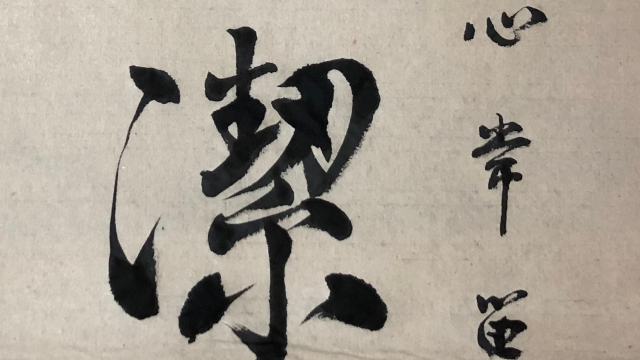 心常留
潔